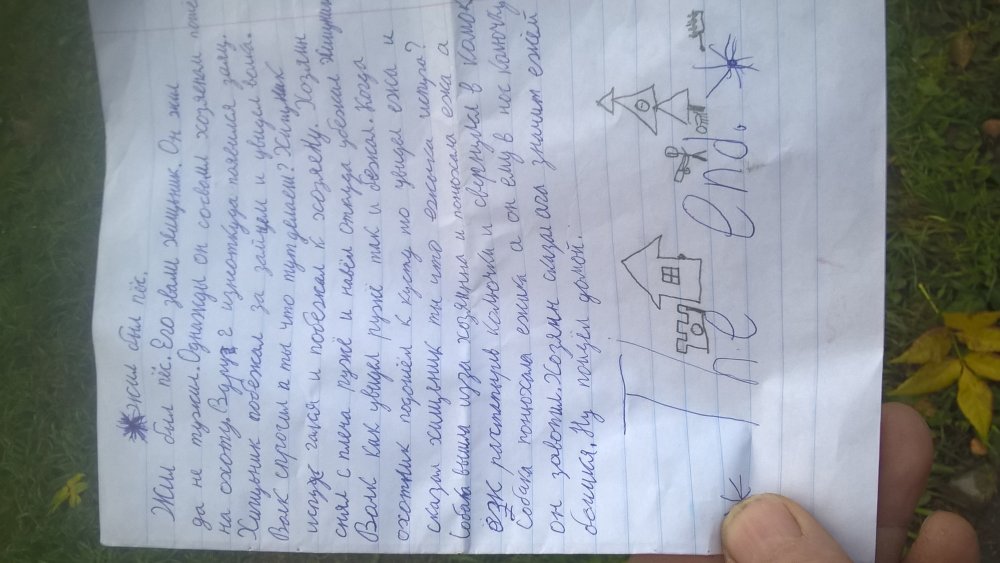 Жил был пёс.
Жил был пёс. Его звали хищник. Он жил
да не тужил. Однажды он со своим хозяеном пошё
на охоту. Вдруг изнеоткуда появился заяц.
Хищьник побежал за зайцем и увидел волка.
Волк спросил а ты что тут делаеш? Хищьник
испугался и побежал к хозяену. Хозяин
снял с плеча ружё и навёл откуда убежал хищник
Волк как увидел ружё так и бежал. Когда
охотник подошёл к кусту то увидел ежа и
сказал хищник ты что ежика испугал?
Собака вышла изза хозяина и понюхала ежа а
ёзж расстапырив колючки и свернулся в комок
Собака понюхала ежика а он ему в нос колючку
он завопил. Хозяин сказал ага значит ежей
боишся. Ну пошли домой.
The end.